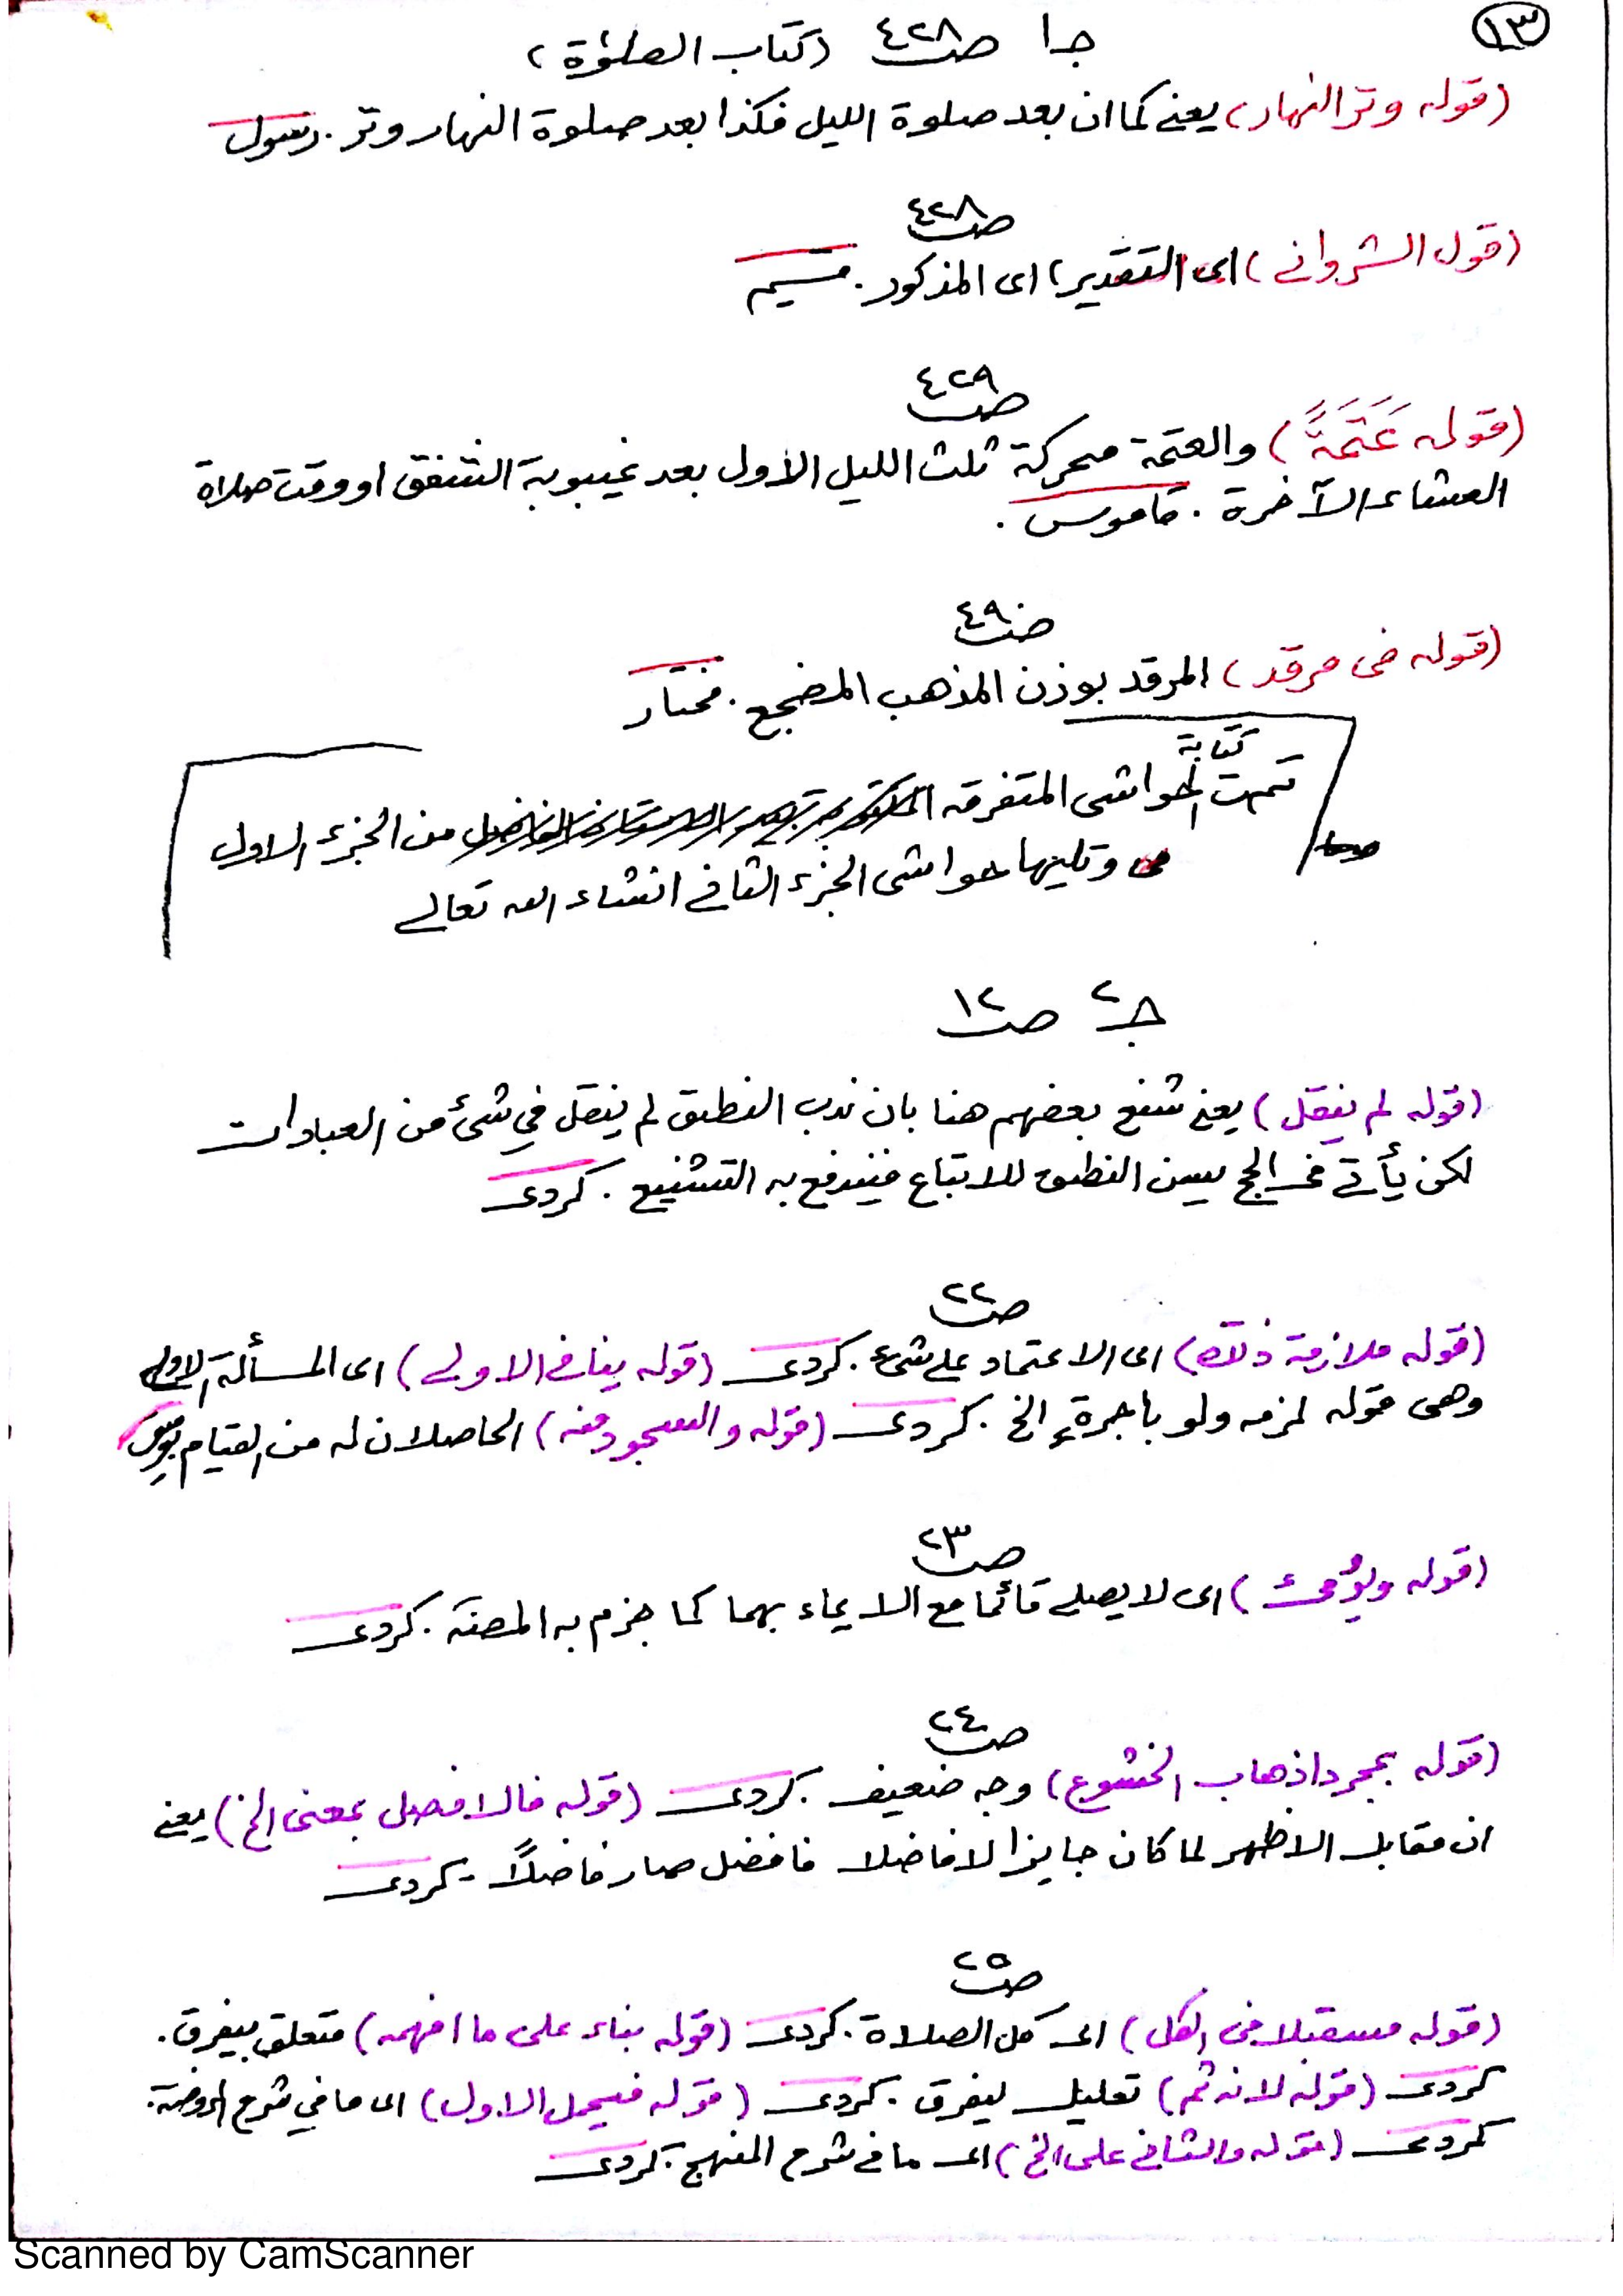 ١٣
جـ١ صـ٤٢٨ (كتاب الصلوٰة)
(قوله وتر النهار) يعنى كما ان بعد صلوة الليل فكذا بعد صلوة النهار وتر. رسول
صـ٤٢٨
(قول الشروانى) اى التقدير) اى المذكور.
صـ٤٢٩
(قوله عَتَمَةً) والعتمة محركة ثلث الليل الاول بعد غيبوبة الشفق او وقت صلاة
العشاء الآخرة. قاموس.
صـ٤٩٠
(قوله فى مرقد) المرقد بوزن المذهب المضجع. مختار
كتابة
تمت الحواشى المتفرقه من الجزء الاول
وتليها حواشى الجزء الثانى انشاء الله تعالى
جـ٢ صـ١٢
(قوله لم ينقل) يعنى شنع بعضهم هنا بان ندب النطق لم ينقل في شئ من العبادات
لكن يأتى فى الحج يسن النطق للاتباع فيندفع به التشنيع. كردى
صـ٢٢
(قوله ملازمة ذلك) اى الاعتماد على شىء. كردى (قوله ينافى الاولى) اى المسألة الاولى
وهى قوله لزمه ولو باجرةٍ الخ. كردى (قوله والسجود منه) الحاصلان له من القيام
صـ٢٣
(قوله ويُومئ) اى لا يصلى قائما مع الايماء بهما كما جزم به المصنف. كردى
صـ٢٤
(قوله بمجرد اذهاب الخشوع) وجه ضعيف. كردى (قوله فالافضل بمعنى الخ) يعنى
ان مقابل الاظهر لما كان جايزا لا فاضلا فافضل صار فاضلاً. كردى
صـ٢٥
(قوله مستقبلا فى الكل) اى كل الصلاة. كردى (قوله بناء على ما افهمه) متعلق بيفرق.
كردى (قوله لانه ثم) تعليل ليفرق. كردى (قوله فيحمل الاول) اى ما في شرح الروضة.
كردى (قوله والثانى على الخ) اى ما فى شرح المنهج. كردى
Scanned by CamScanner